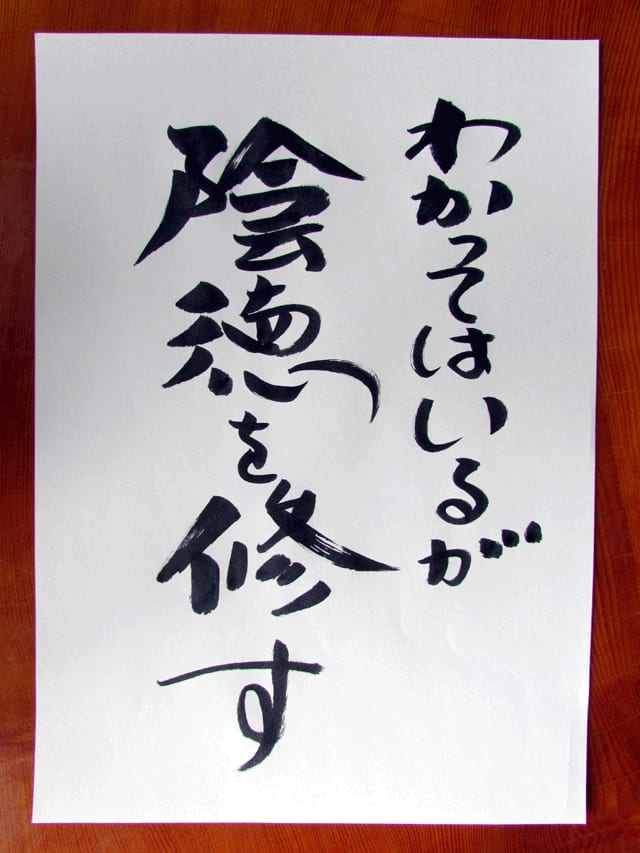 わかってはいるが
陰徳を修す